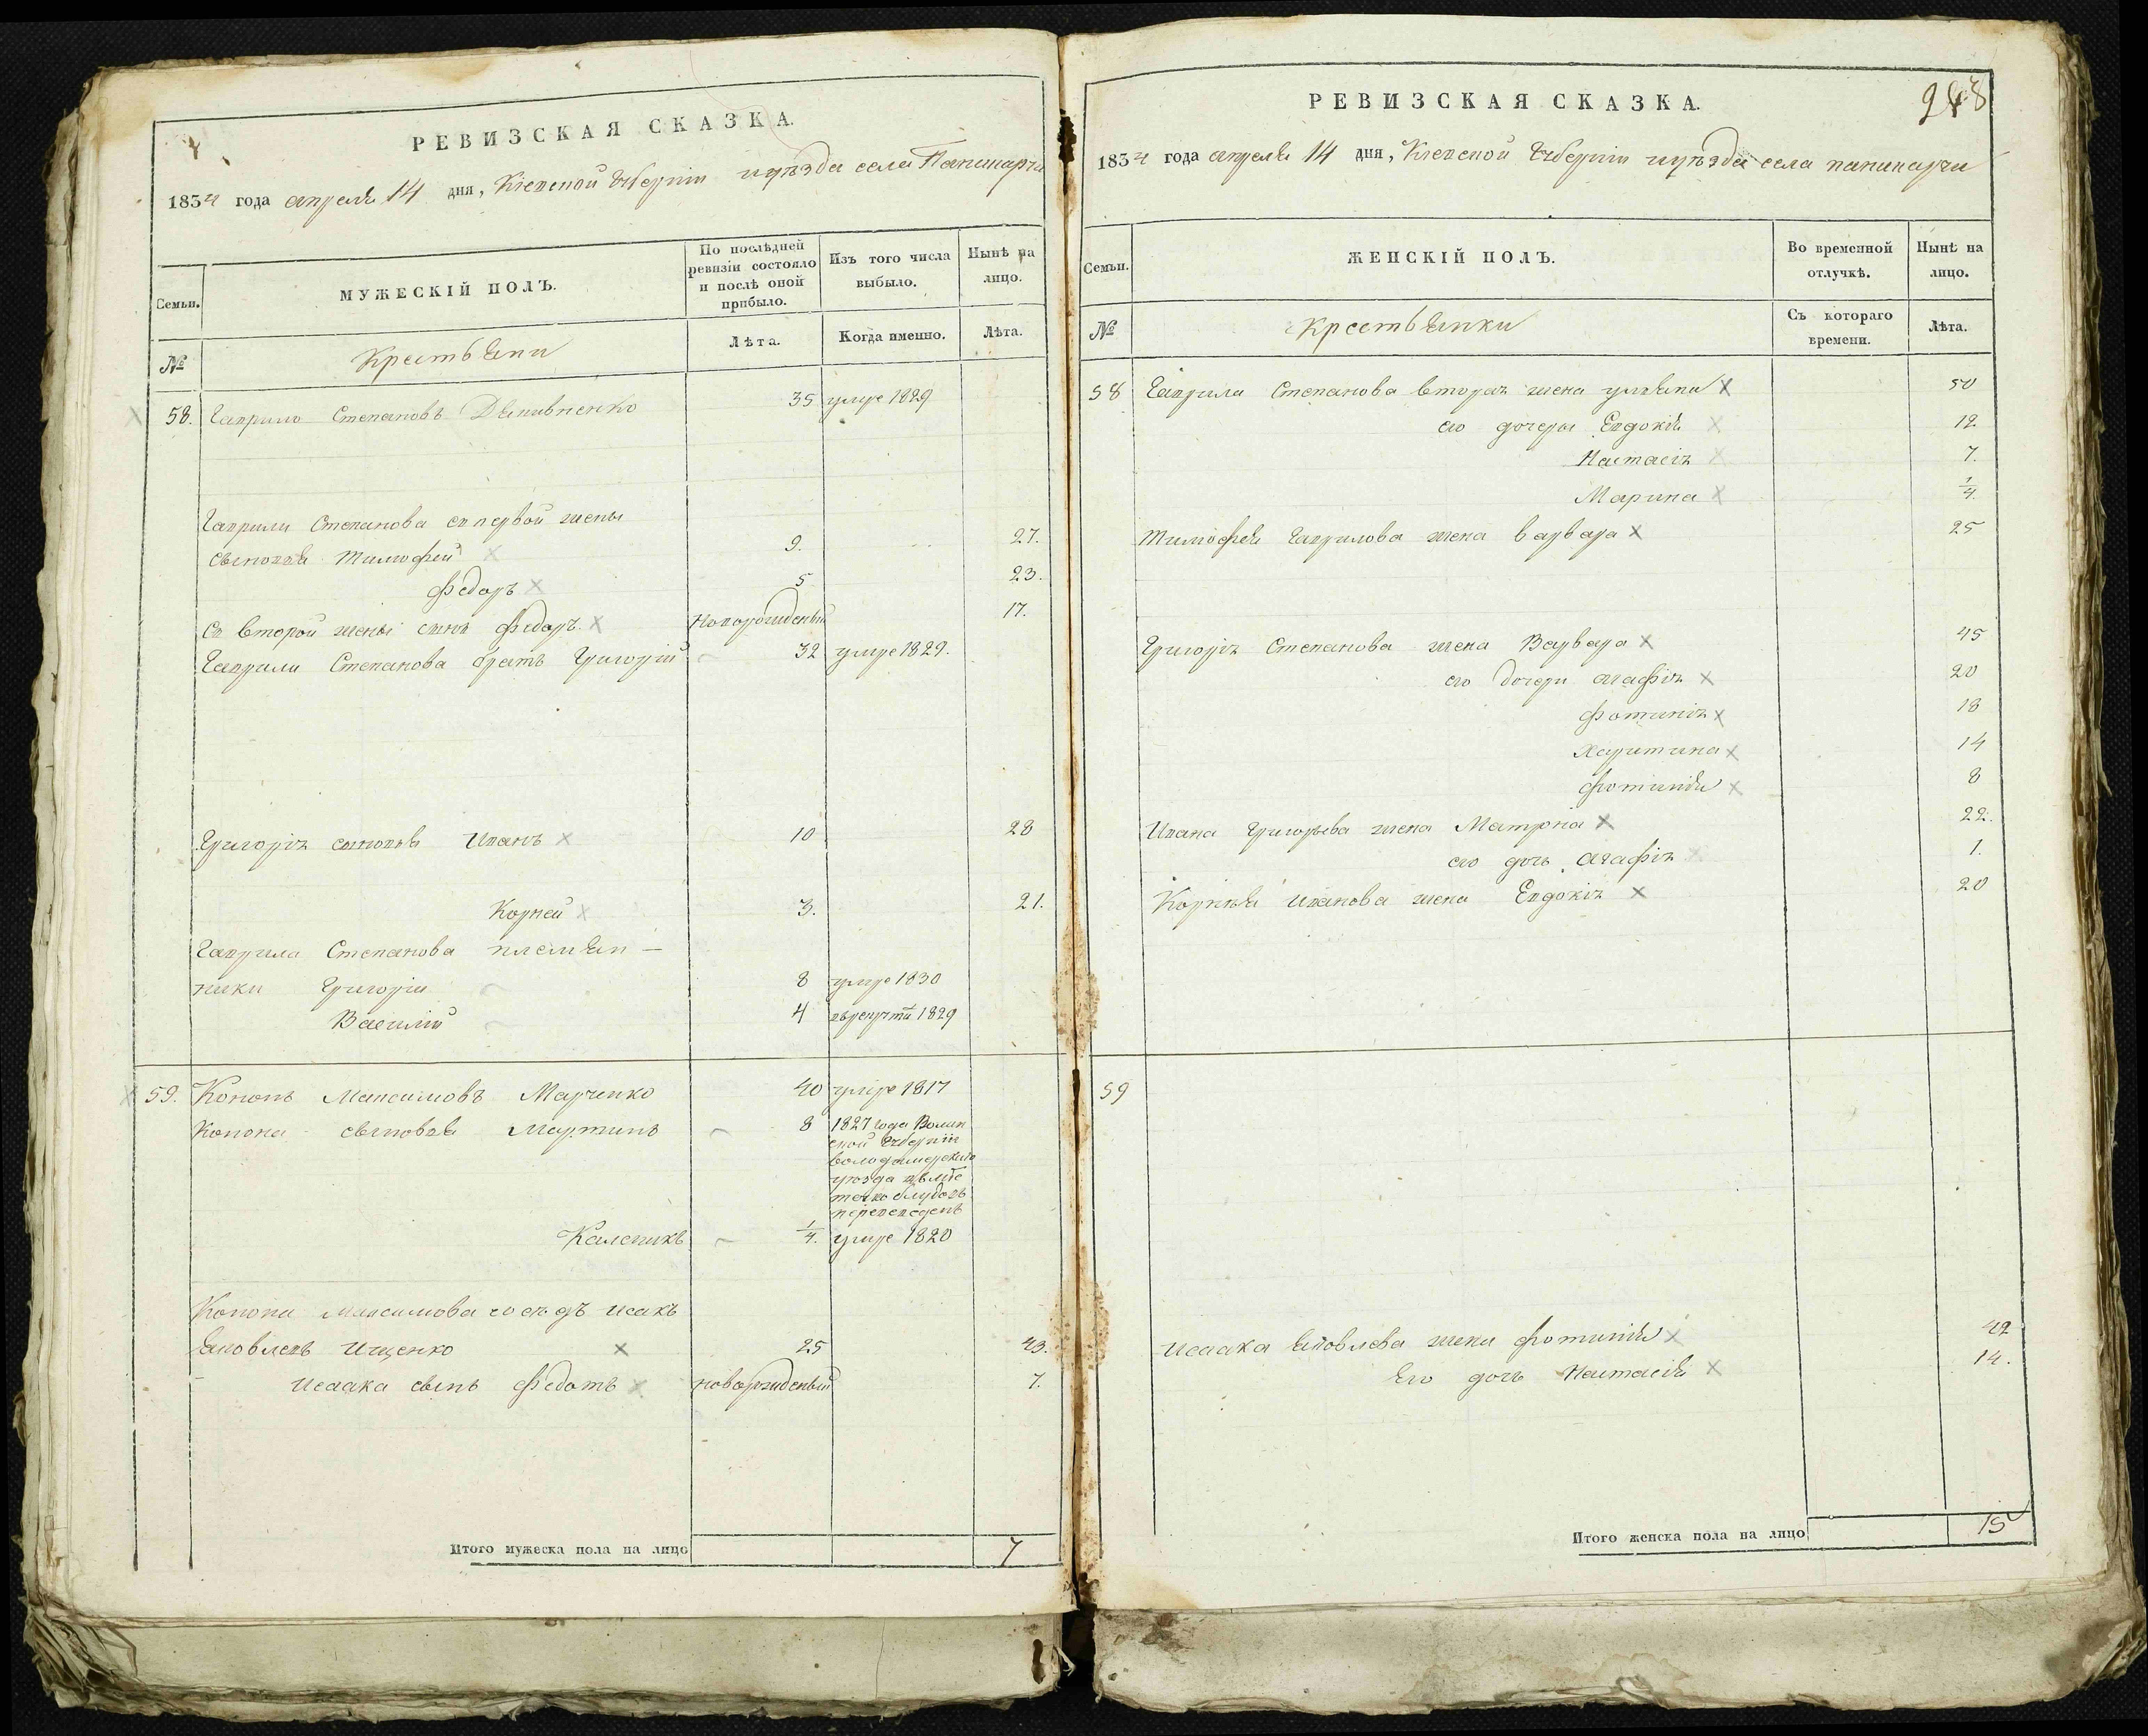 РЕВИЗСКАЯ СКАЗКА.
1834 года апреля 14 дня, Кіевской Губерніи и уѣзда села Папинарчи
Семьи.
МУЖЕСКІЙ ПОЛЪ.
По послѣдней ревизіи состояло и послѣ оной прибыло.
Изъ того числа выбыло.
Нынѣ на лицо.
№
Крестьяни
Лѣта.
Когда именно.
Лѣта.
58. Гаврило Степановъ 35 умре 1829
Гаврили Степанова съ первой жены
сыновья Тимофей 9. 27.
Федоръ 5 23.
Съ второй жены сынъ Федоръ. Новорожденый 17.
Гаврили Степанова братъ Григорій 32 умре 1829.
Григорія сыновья Иванъ 10 28
Корней 3. 21.
Гаврила Степанова племян—
ники Григорій 8 умре 1830
Василій 4 1829
59. Кононъ Максимовъ Марченко 40 умре 1817
Конона сыновья Мартинъ 8 1827 года Волин
ской Губерніи
володимерскаго
уезда
переведенъ
Каленикъ 1/4. умре 1820
Конона Максимова сосѣдъ Исакъ
Яковлевъ Ищенко 25 43.
Исаака сынъ Федотъ новорожденый 7.
Итого мужеска пола на лицо 7
РЕВИЗСКАЯ СКАЗКА.
248
1834 года апреля 14 дня, Кіевской Губерніи и уѣзда села папинарчи
Семьи.
ЖЕНСКІЙ ПОЛЪ.
Во временной отлучкѣ.
Нынѣ на лицо.
№
Крестьянки
Съ котораго времени.
Лѣта.
58 Гаврила Степанова вторая жена Ульяна 50
его дочеры Евдокія 12
Настасія 7.
Марина 1/4.
Тимофея Гаврилова жена варвара 25
Григорія Степанова жена Варвара 45
его дочери агафія 20
Фотинія 18
Харитина 14
Фотинія 8
Ивана Григорьева жена Матрона 22.
его дочь агафія 1.
Корнея Иванова жена Евдокія 20
59
Исаака Яковлева жена Фотинія 42
Его дочь Настасія 14.
Итого женска пола на лицо 15